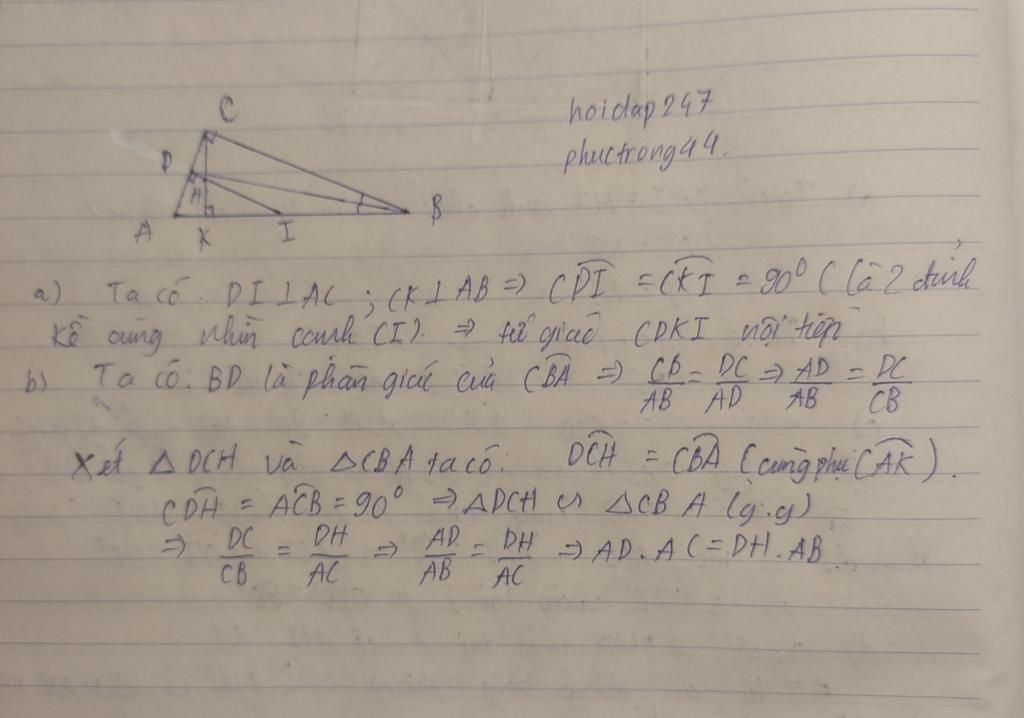 hoidap247
phuctrong44.
C
D
H
A
K
I
B
a) Ta có. DI⊥AC ; CK⊥AB => \widehat{CDI} = \widehat{CKI} = 90⁰ (Là 2 đỉnh
kề cùng nhìn cạnh CI). => tứ giác CDKI nội tiếp
b) Ta có: BD là phân giác của \widehat{CBA} => \frac{CB}{AB} = \frac{DC}{AD} => \frac{AD}{AB} = \frac{DC}{CB}
Xét △DCH và △CBA ta có: \widehat{DCH} = \widehat{CBA} (cùng phụ \widehat{CAK}).
\widehat{CDH} = \widehat{ACB} = 90⁰ => △DCH ∽ △CBA (g.g)
=> \frac{DC}{CB} = \frac{DH}{AC} => \frac{AD}{AB} = \frac{DH}{AC} => AD.AC = DH.AB.